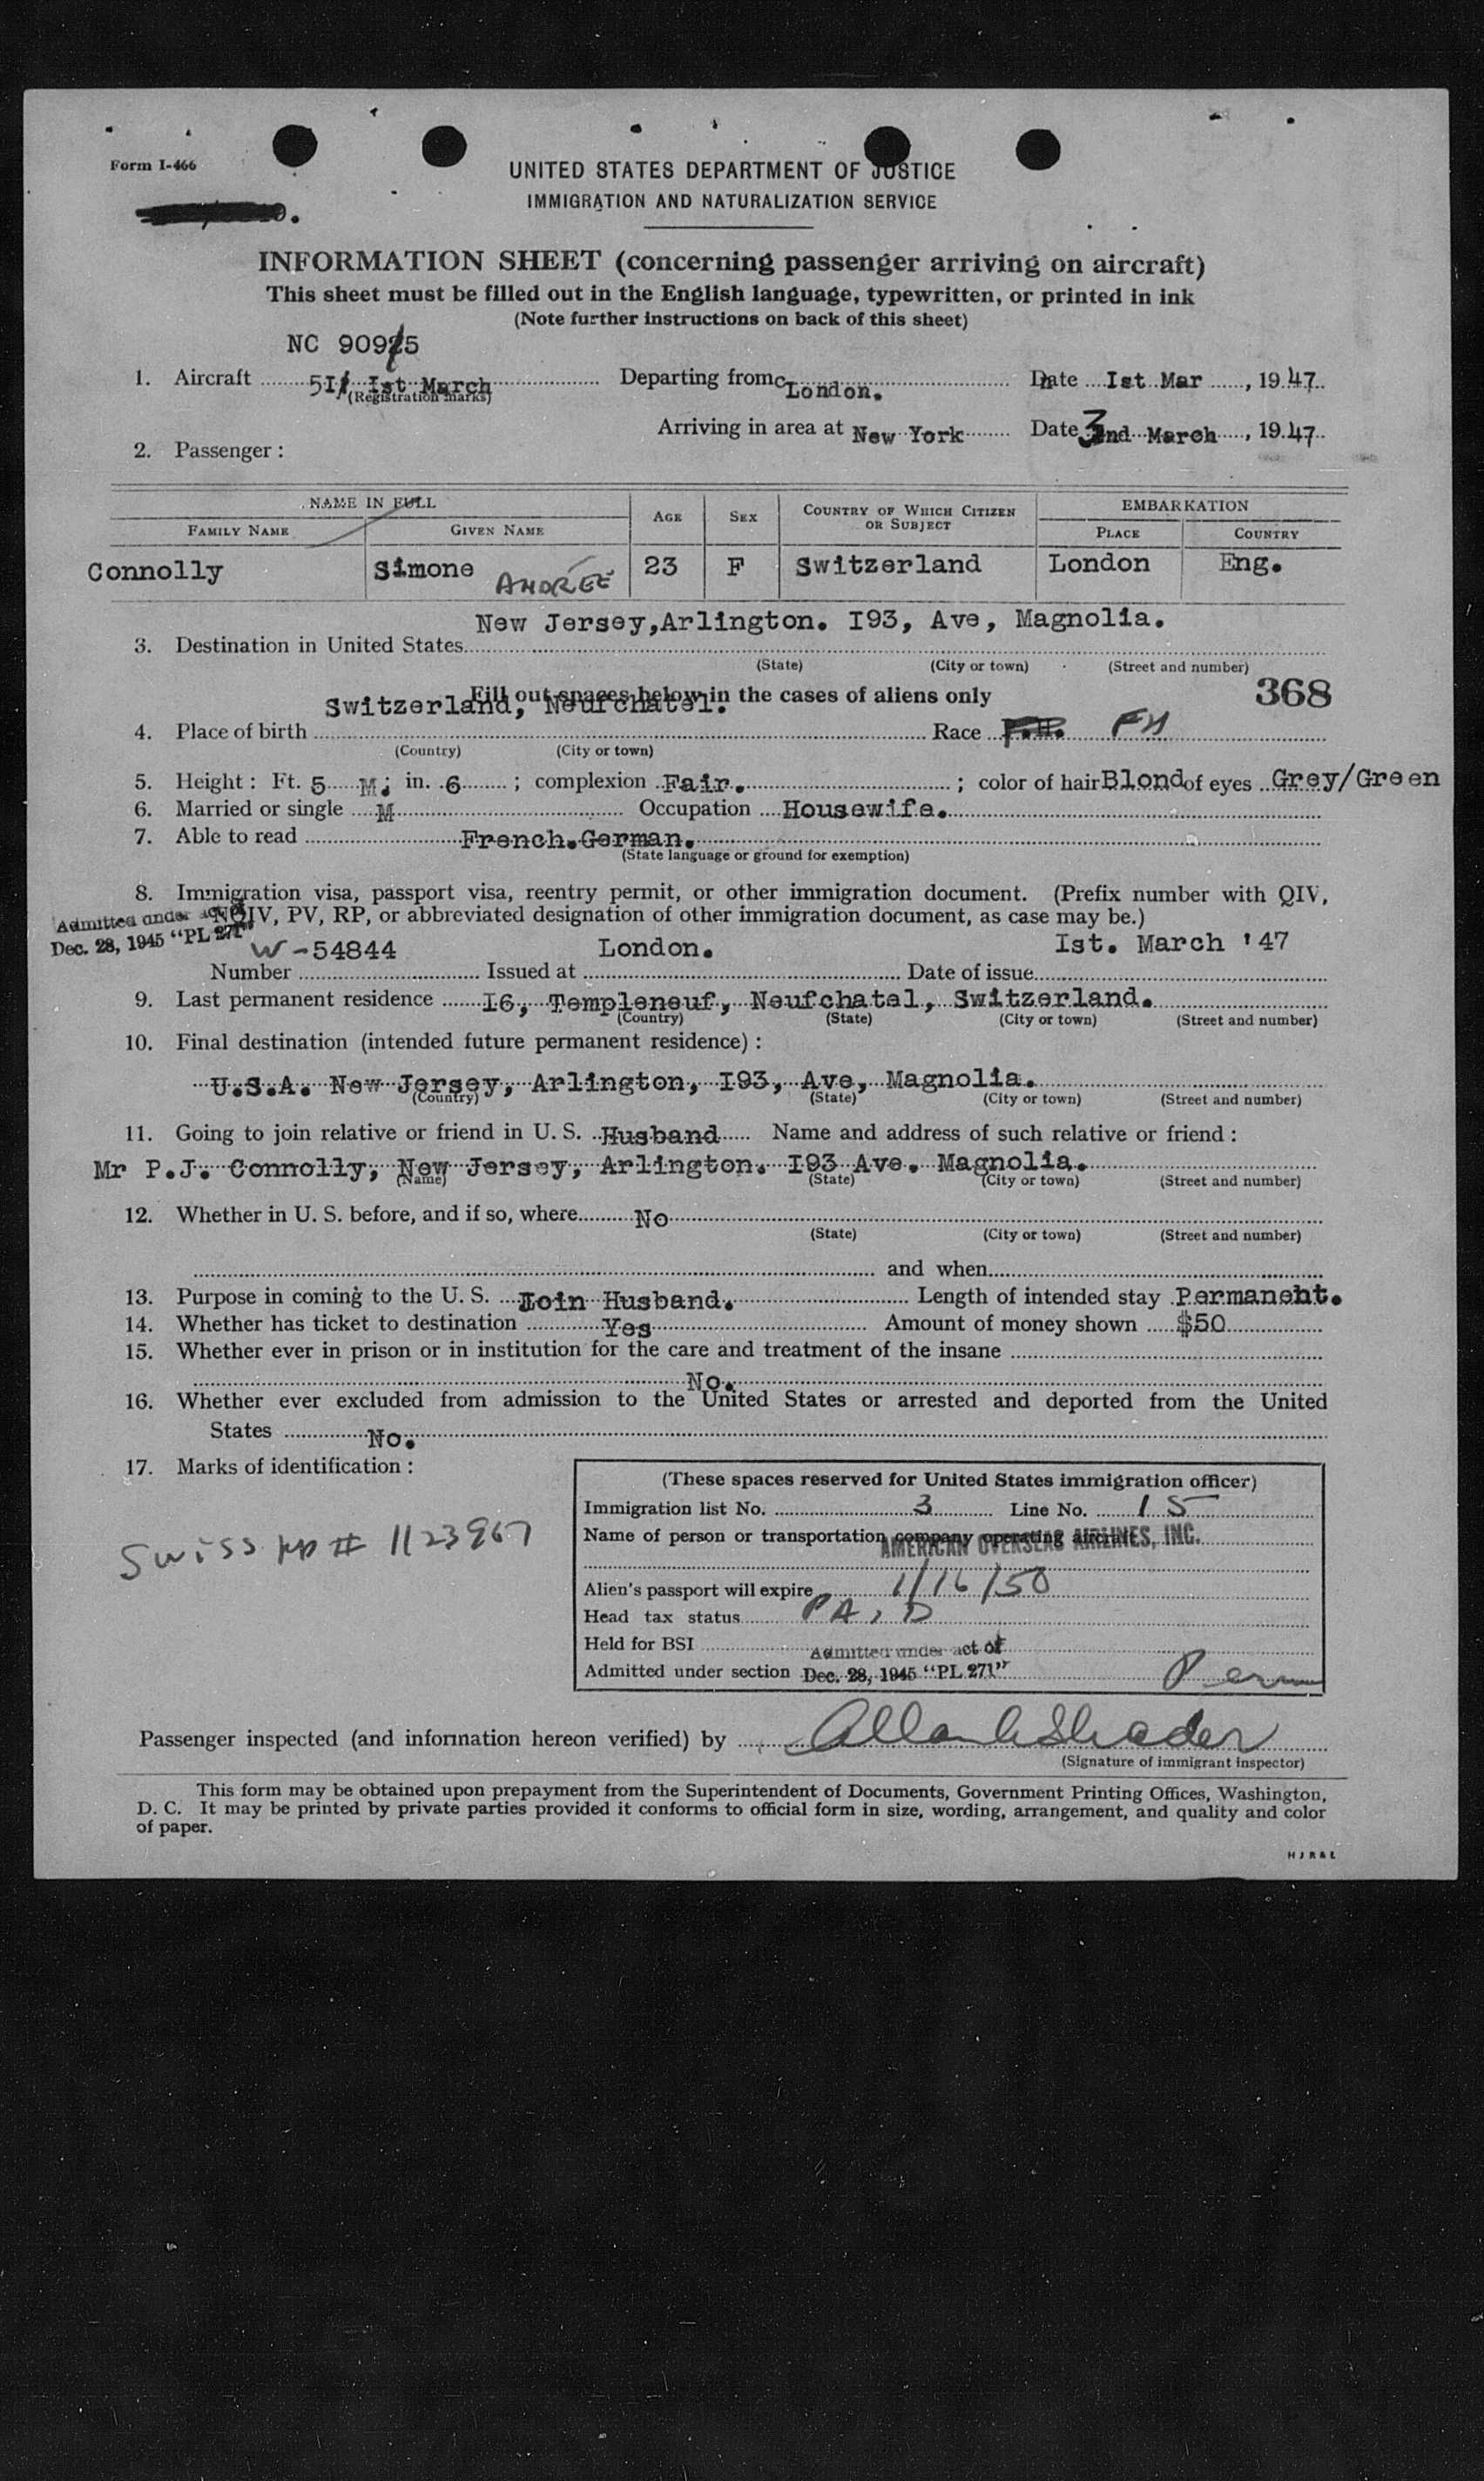 Form I-466
UNITED STATES DEPARTMENT OF JUSTICE
IMMIGRATION AND NATURALIZATION SERVICE
INFORMATION SHEET (concerning passenger arriving on aircraft)
This sheet must be filled out in the English language, typewritten, or printed in ink
(Note further instructions on back of this sheet)
NC 909
1. Aircraft 51 Ist March Departing from London. Date Ist Mar, 1947
(Registration marks)
Arriving in area at New York Date 3 March, 1947
2. Passenger:
NAME IN FULL AGE SEX COUNTRY OF WHICH CITIZEN OR SUBJECT EMBARKATION
FAMILY NAME GIVEN NAME PLACE COUNTRY
Connolly Simone ANDRÉE 23 F Switzerland London Eng.
New Jersey,Arlington. I93, Ave, Magnolia.
3. Destination in United States
(State) (City or town) (Street and number)
368
Fill out spaces below in the cases of aliens only
Switzerland, Neufchatel.
4. Place of birth Race FH
(Country) (City or town)
5. Height: Ft. 5 M; in. 6; complexion Fair.; color of hair Blond of eyes Grey/Green
6. Married or single M Occupation Housewife.
7. Able to read French.German.
(State language or ground for exemption)
8. Immigration visa, passport visa, reentry permit, or other immigration document. (Prefix number with QIV,
NQIV, PV, RP, or abbreviated designation of other immigration document, as case may be.)
Admitted under act of
Dec. 28, 1945 "PL 271"
W-54844 London. Ist. March '47
Number Issued at Date of issue
9. Last permanent residence I6, Templeneuf, Neufchatel, Switzerland.
(Country) (State) (City or town) (Street and number)
10. Final destination (intended future permanent residence):
U.S.A. New Jersey, Arlington, I93, Ave, Magnolia.
(Country) (State) (City or town) (Street and number)
11. Going to join relative or friend in U. S. Husband Name and address of such relative or friend:
Mr P.J. Connolly, New Jersey, Arlington. I93 Ave. Magnolia.
(Name) (State) (City or town) (Street and number)
12. Whether in U. S. before, and if so, where No
(State) (City or town) (Street and number)
and when
13. Purpose in coming to the U. S. Join Husband. Length of intended stay Permanent.
14. Whether has ticket to destination Yes Amount of money shown $50
15. Whether ever in prison or in institution for the care and treatment of the insane
No.
16. Whether ever excluded from admission to the United States or arrested and deported from the United
States No.
17. Marks of identification:
Swiss pp # 1123967
(These spaces reserved for United States immigration officer)
Immigration list No. 3 Line No. 15
Name of person or transportation company operating aircraft
AMERICAN OVERSEAS AIRLINES, INC.
Alien's passport will expire 1/16/50
Head tax status PAID
Held for BSI
Admitted under act of
Admitted under section Dec. 28, 1945 "PL 271" Perm
Passenger inspected (and information hereon verified) by
(Signature of immigrant inspector)
This form may be obtained upon prepayment from the Superintendent of Documents, Government Printing Offices, Washington,
D. C. It may be printed by private parties provided it conforms to official form in size, wording, arrangement, and quality and color
of paper.
H J R & L